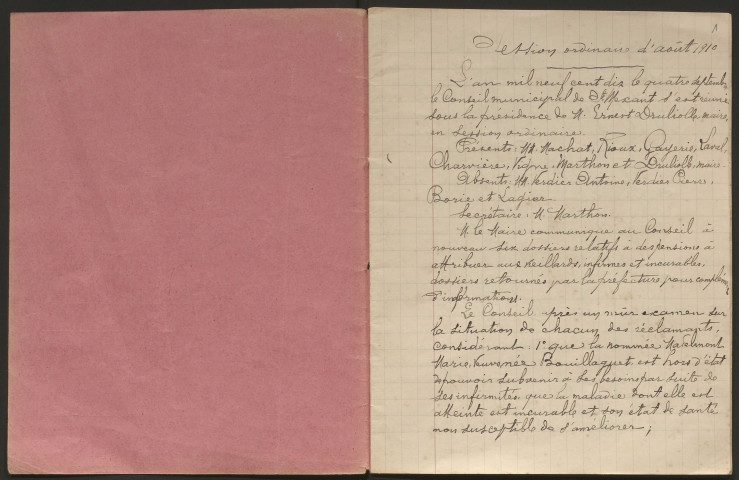 1
Session ordinaire d'août 1910
L'an mil neuf cent dix le quatre septembre
le Conseil municipal de St Mexant s'est réuni
sous la présidence de M. Ernest Druliolle, maire,
en session ordinaire.
Présents: MM. Machat, Rioux, Gayerie, Laval,
Charvière, Vigne, Marthon et Druliolle, maire.
Absents: MM. Verdier Antoine, Verdier Pierre,
Borie et Lagier.
Secrétaire: M. Marthon.
M. le Maire communique au Conseil à
nouveau six dossiers relatifs à des pensions à
attribuer aux vieillards, infirmes et incurables,
dossiers retournés par la préfecture pour complément
d'informations.
Le Conseil après un mûr examen sur
la situation de chacun des réclamants,
considérant: 1° que la nommée
Marie, veuve née Bouillaguet, est hors d'état
de pouvoir subvenir à ses besoins par suite de
ses infirmités, que la maladie dont elle est
atteinte est incurable et son état de santé
non susceptible de s'améliorer;